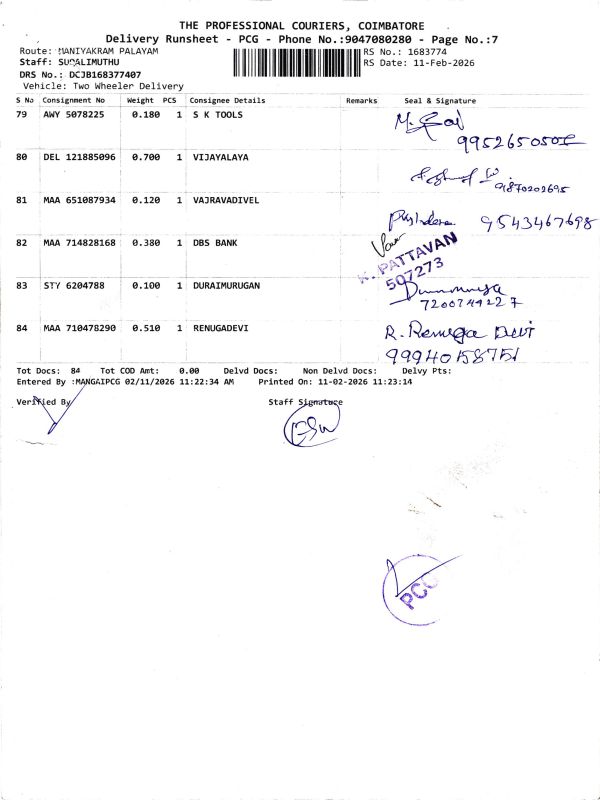 THE PROFESSIONAL COURIERS, COIMBATORE
Delivery Runsheet - PCG - Phone No.:9047080280 - Page No.:7
Route: MANIYAKRAM PALAYAM
RS No.: 1683774
Staff: SUDALIMUTHU
RS Date: 11-Feb-2026
DRS No.: DCJB168377407
Vehicle: Two Wheeler Delivery
S No Consignment No Weight PCS Consignee Details Remarks Seal & Signature
79 AWY 5078225 0.180 1 S K TOOLS
80 DEL 121885096 0.700 1 VIJAYALAYA
91870202695
81 MAA 651087934 0.120 1 VAJRAVADIVEL
9543467698
82 MAA 714828168 0.380 1 DBS BANK
K. PATTAVAN
507273
83 STY 6204788 0.100 1 DURAIMURUGAN
7200749227
84 MAA 710478290 0.510 1 RENUGADEVI R. Renuga Devi
9994058751
Tot Docs: 84 Tot COD Amt: 0.00 Delvd Docs: Non Delvd Docs: Delvy Pts:
Entered By :MANGAIPCG 02/11/2026 11:22:34 AM Printed On: 11-02-2026 11:23:14
Verified By Staff Signature
PCG